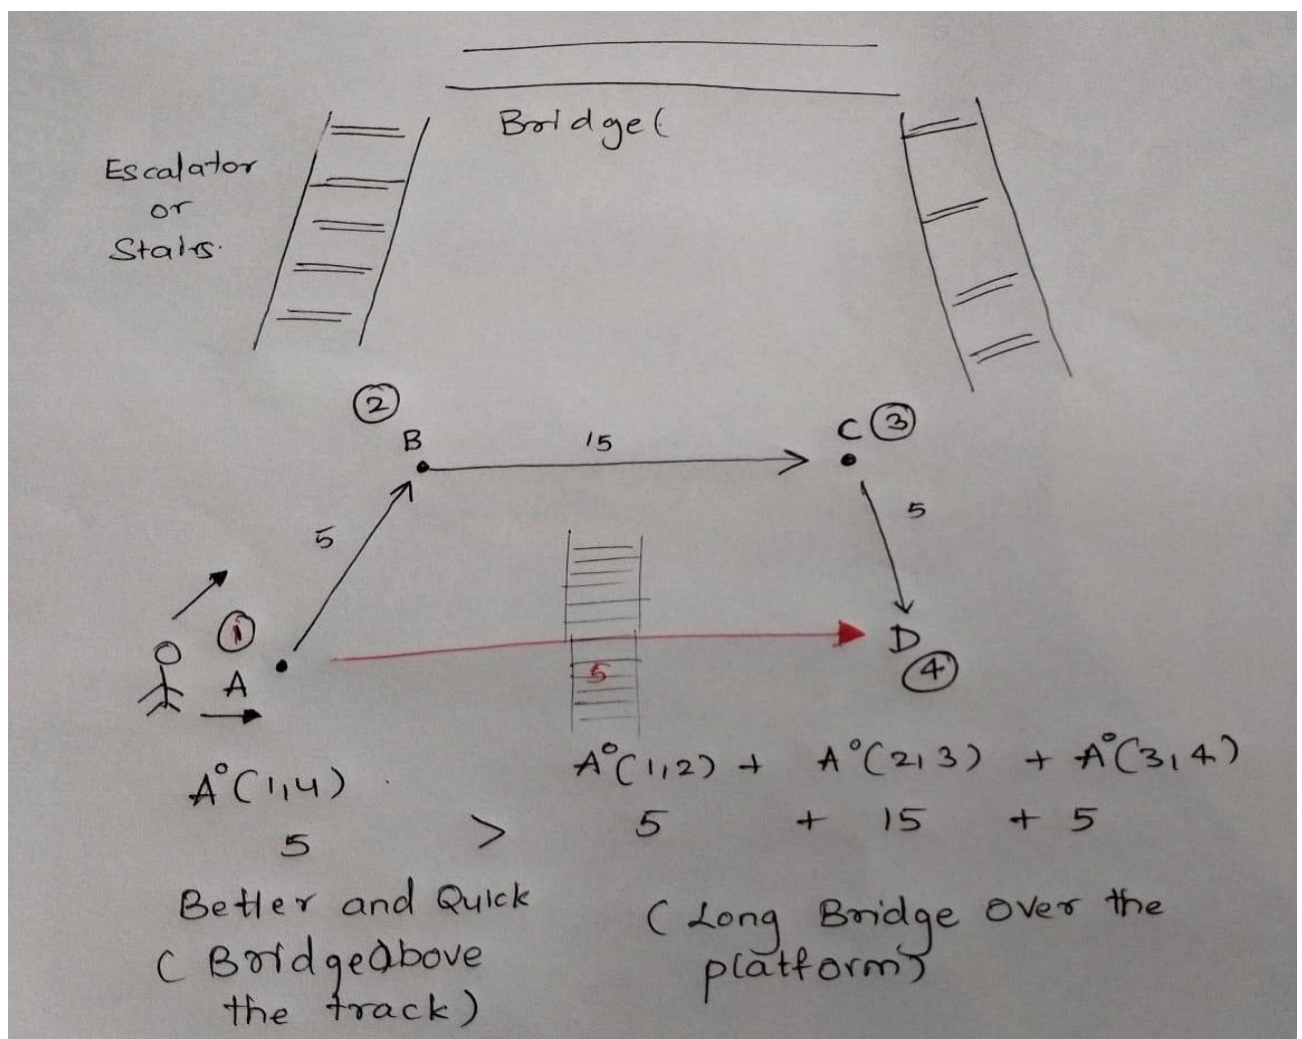 Bridge(
Escalator
or
Stairs.
2
B
15
C 3
5
5
1
A
D
4
5
A°(1,4)
A°(1,2) + A°(2,3) + A°(3,4)
5 > 5 + 15 + 5
Better and Quick
( Bridge above
the track)
( Long Bridge over the
platform)